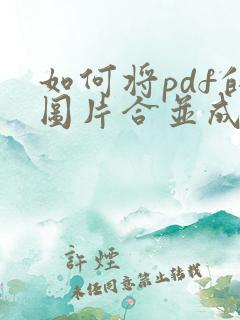 如何将pdf的
图片合并成
許煙
未经同意禁止转载